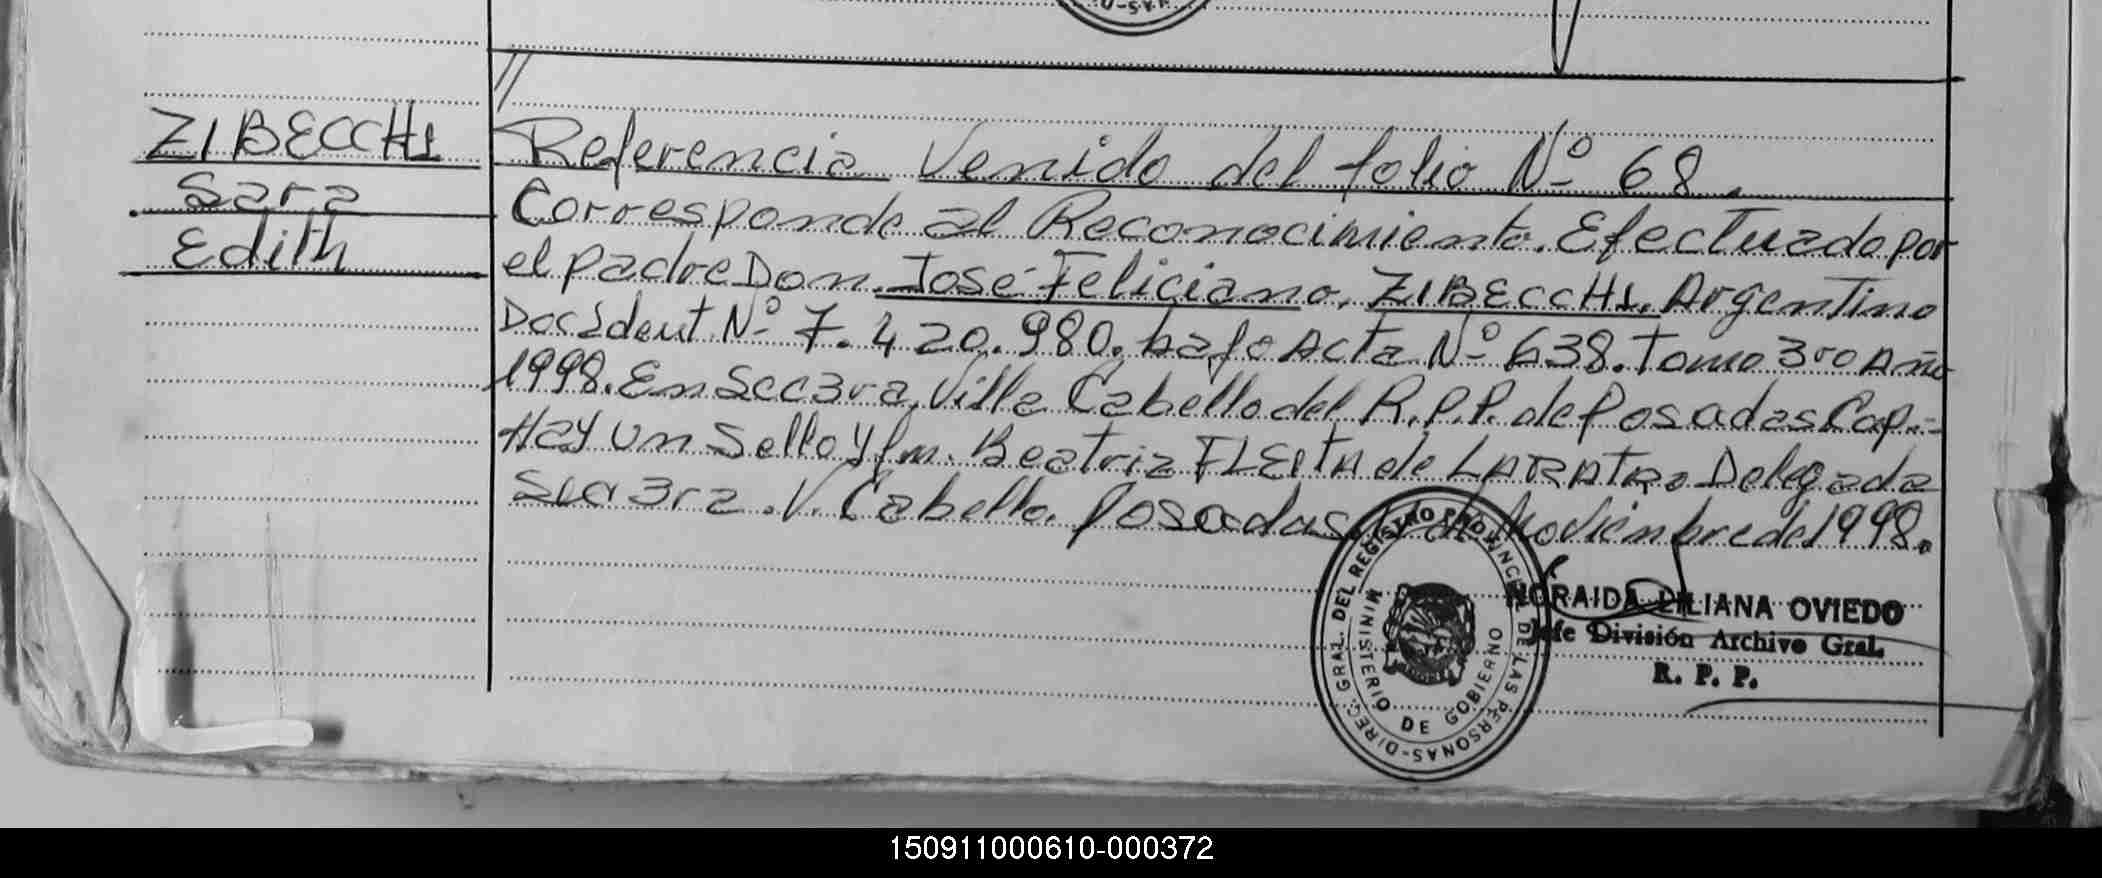 ZIBECCHI
Sara
Edith
Referencia Venido del folio Nº 68.
Corresponde al Reconocimiento. Efectuado por
el padre Don. José Feliciano, ZIBECCHI. Argentino
Doc Ident Nº 7.420.980. bajo Acta Nº 638. Tomo 3ro Año
1998. En Secc 3ra, Villa Cabello del R.P.P. de Posadas Cap.-
Hay un Sello y fm. Beatriz FLEITA de Delegada
3ra. V. Cabello. Posadas Noviembre de 1998.
DIREC. GRAL. DEL REGISTRO PROVINCIAL DE LAS PERSONAS
MINISTERIO DE GOBIERNO
NORAIDA LILIANA OVIEDO
Jefe División Archivo Gral.
R. P. P.
150911000610-000372